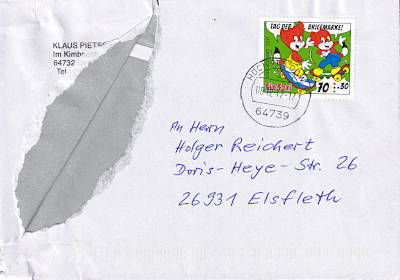 KLAUS PIETS
Im Kimb
64732
Tel
TAG DER BRIEFMARKE!
Fix & Foxi
70 + 30
HÖ
64739
An Herrn
Holger Reichert
Doris-Heye-Str. 26
26931 Elsfleth